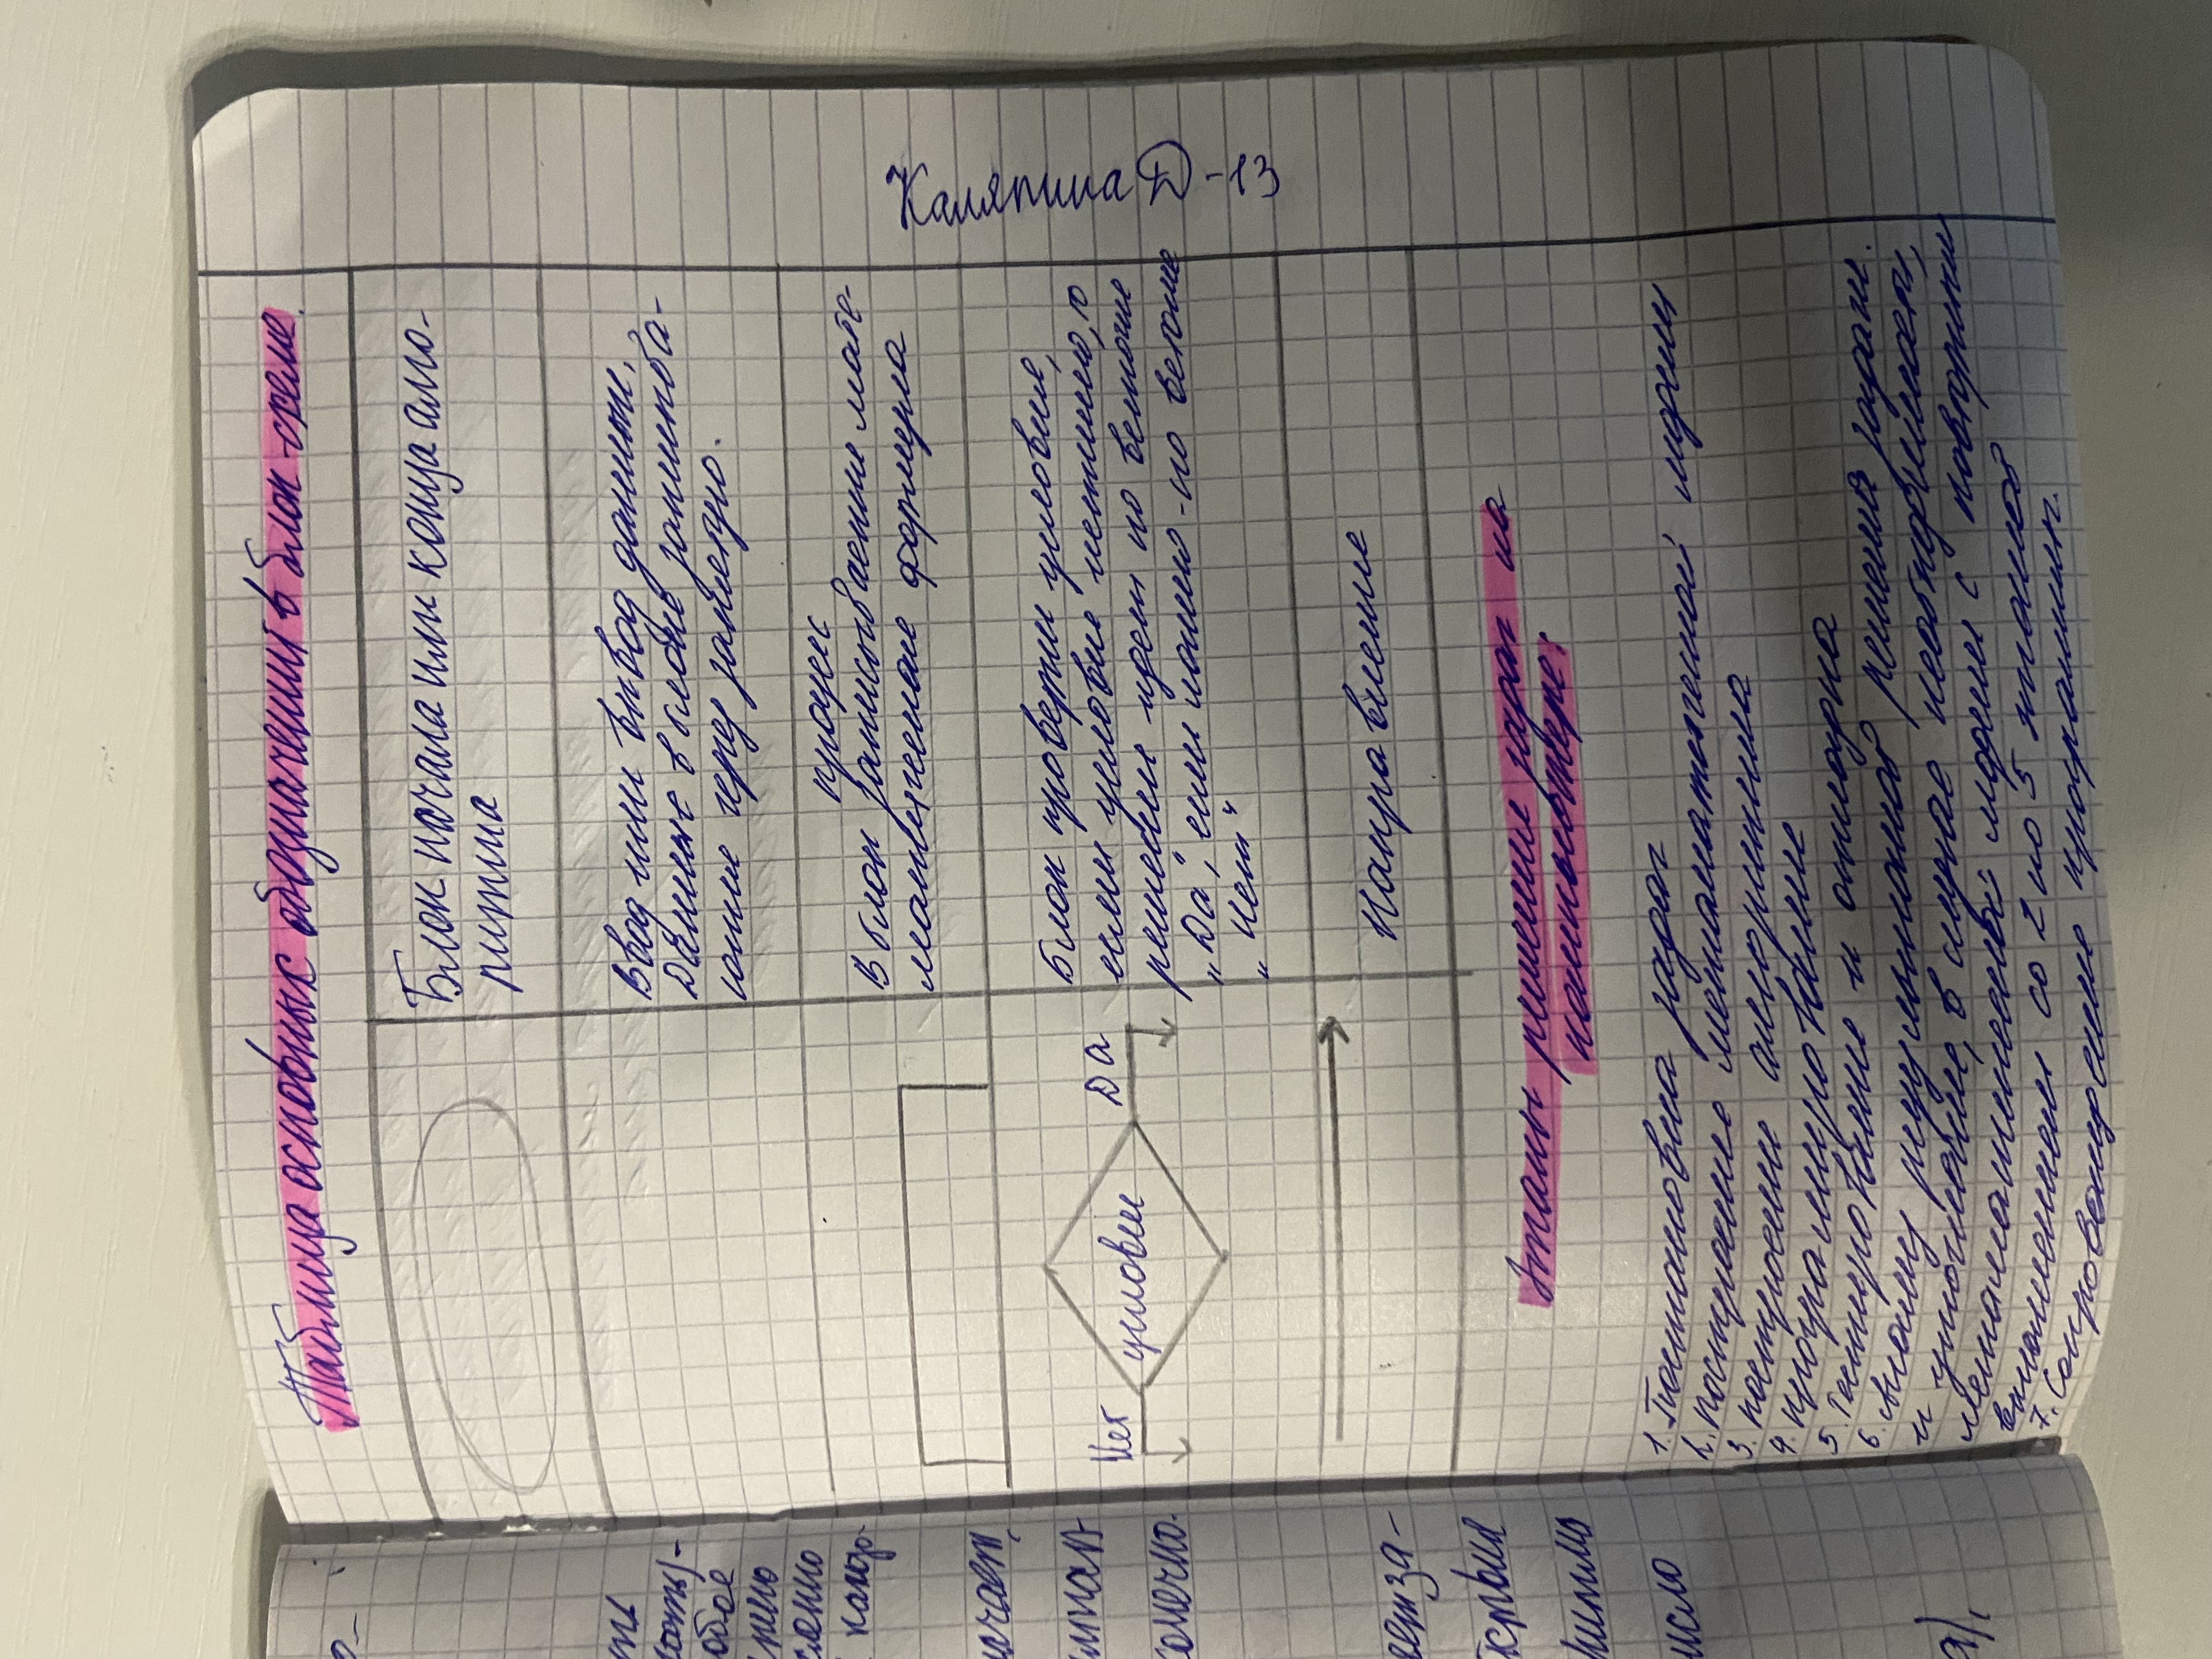 Каляпина Д-13
Таблица основных обозначений в блок-схеме.
Блок начала или конца алго-
ритма
Ввод или вывод данных,
Данные в блоке записыва-
юття через запятую.
процесс
В блок записываение мате-
матические формулы
Нет
условия
Да
Блок проверки условие,
если условие истино, то
решение идет по веточке
„Да“, если ложно - по веточке
„Нет“
Направление
Этапы решение задач на
компьютере.
1. Постановка задач
2. построение математической модели
3. построени алгоритма
4. программирование
5 Тестирование и отладка
6. Анализ результатов решения задачи.
и уточнение, в случае необходимости,
математической модели с повторным
выполнением со 2 по 5 этапов
7. Сопровождение программ.